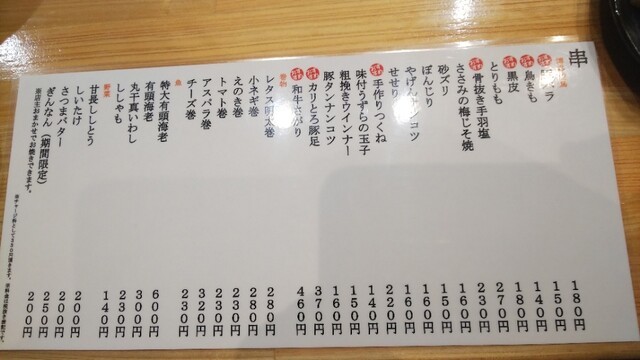 串
豚バラ 180円
鳥きも 150円
黒皮 140円
とりもも 180円
骨抜き手羽塩 270円
ささみの梅じそ焼 230円
砂ズリ 160円
ぼんじり 150円
やげんナンコツ 160円
せせり
手作りつくね 220円
味付うずらの玉子 140円
粗挽きウインナー 150円
豚タンナンコツ 160円
カリとろ豚足 370円
和牛さがり 460円
巻物
レタス明太巻 280円
小ネギ巻 280円
えのき巻 230円
トマト巻 230円
アスパラ巻 320円
チーズ巻 230円
魚
特大有頭海老 600円
有頭海老 300円
丸干真いわし 230円
ししゃも 140円
野菜
甘長ししとう 200円
しいたけ 200円
さつまバター 250円
ぎんなん(期間限定) 200円
※店主おまかせでお焼きできます。